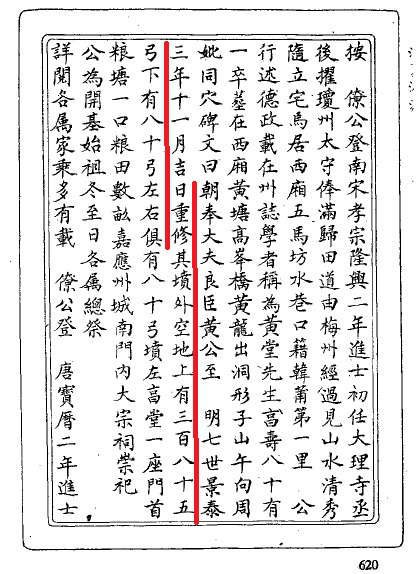 按 僚公登南宋孝宗隆興二年進士初任大理寺丞
後擢瓊州太守俸滿歸田道由梅州經過見山水清秀
隨立宅馬居西廂五馬坊水巷口籍韓莆第一里 公
行述德政載在州誌學者稱為黃堂先生富壽八十有
一卒塟在西廂黃塘高峯橋黃龍出洞形子山午向周
妣同穴碑文曰朝奉大夫良臣黃公至 明七世景泰
三年十一月吉日重修其墳外空地上有三百八十五
弓下有八十弓左右俱有八十弓墳左高堂一座門首
粮塘一口粮田數畝嘉應州城南門內大宗祠崇祀
公為開基始祖冬至日各属總祭
詳閱各属家乘多有載 僚公登 唐寶曆二年進士
620